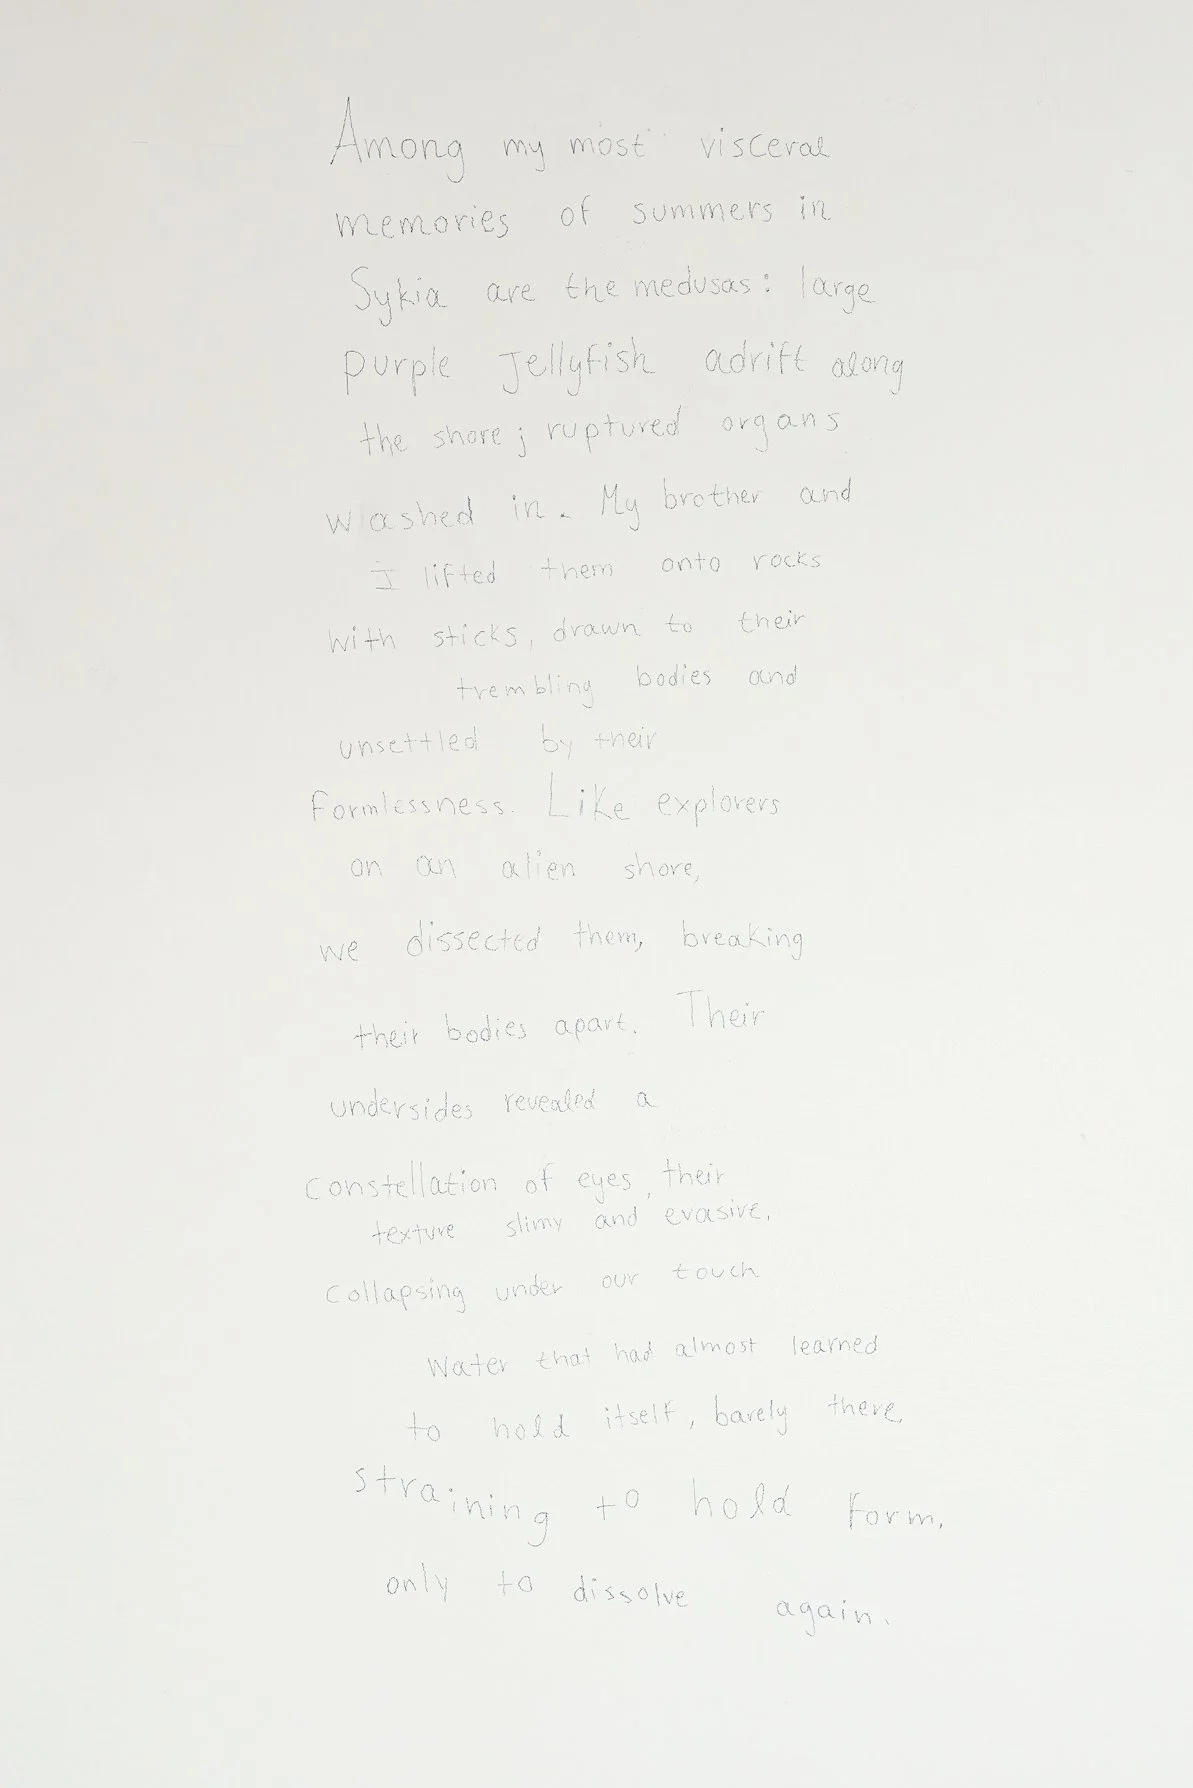 Among my most visceral
memories of summers in
Sykia are the medusas: large
purple jellyfish adrift along
the shore; ruptured organs
washed in. My brother and
I lifted them onto rocks
with sticks, drawn to their
trembling bodies and
unsettled by their
formlessness. Like explorers
on an alien shore,
we dissected them, breaking
their bodies apart. Their
undersides revealed a
constellation of eyes, their
texture slimy and evasive,
collapsing under our touch
Water that had almost learned
to hold itself, barely there,
straining to hold form,
only to dissolve again.